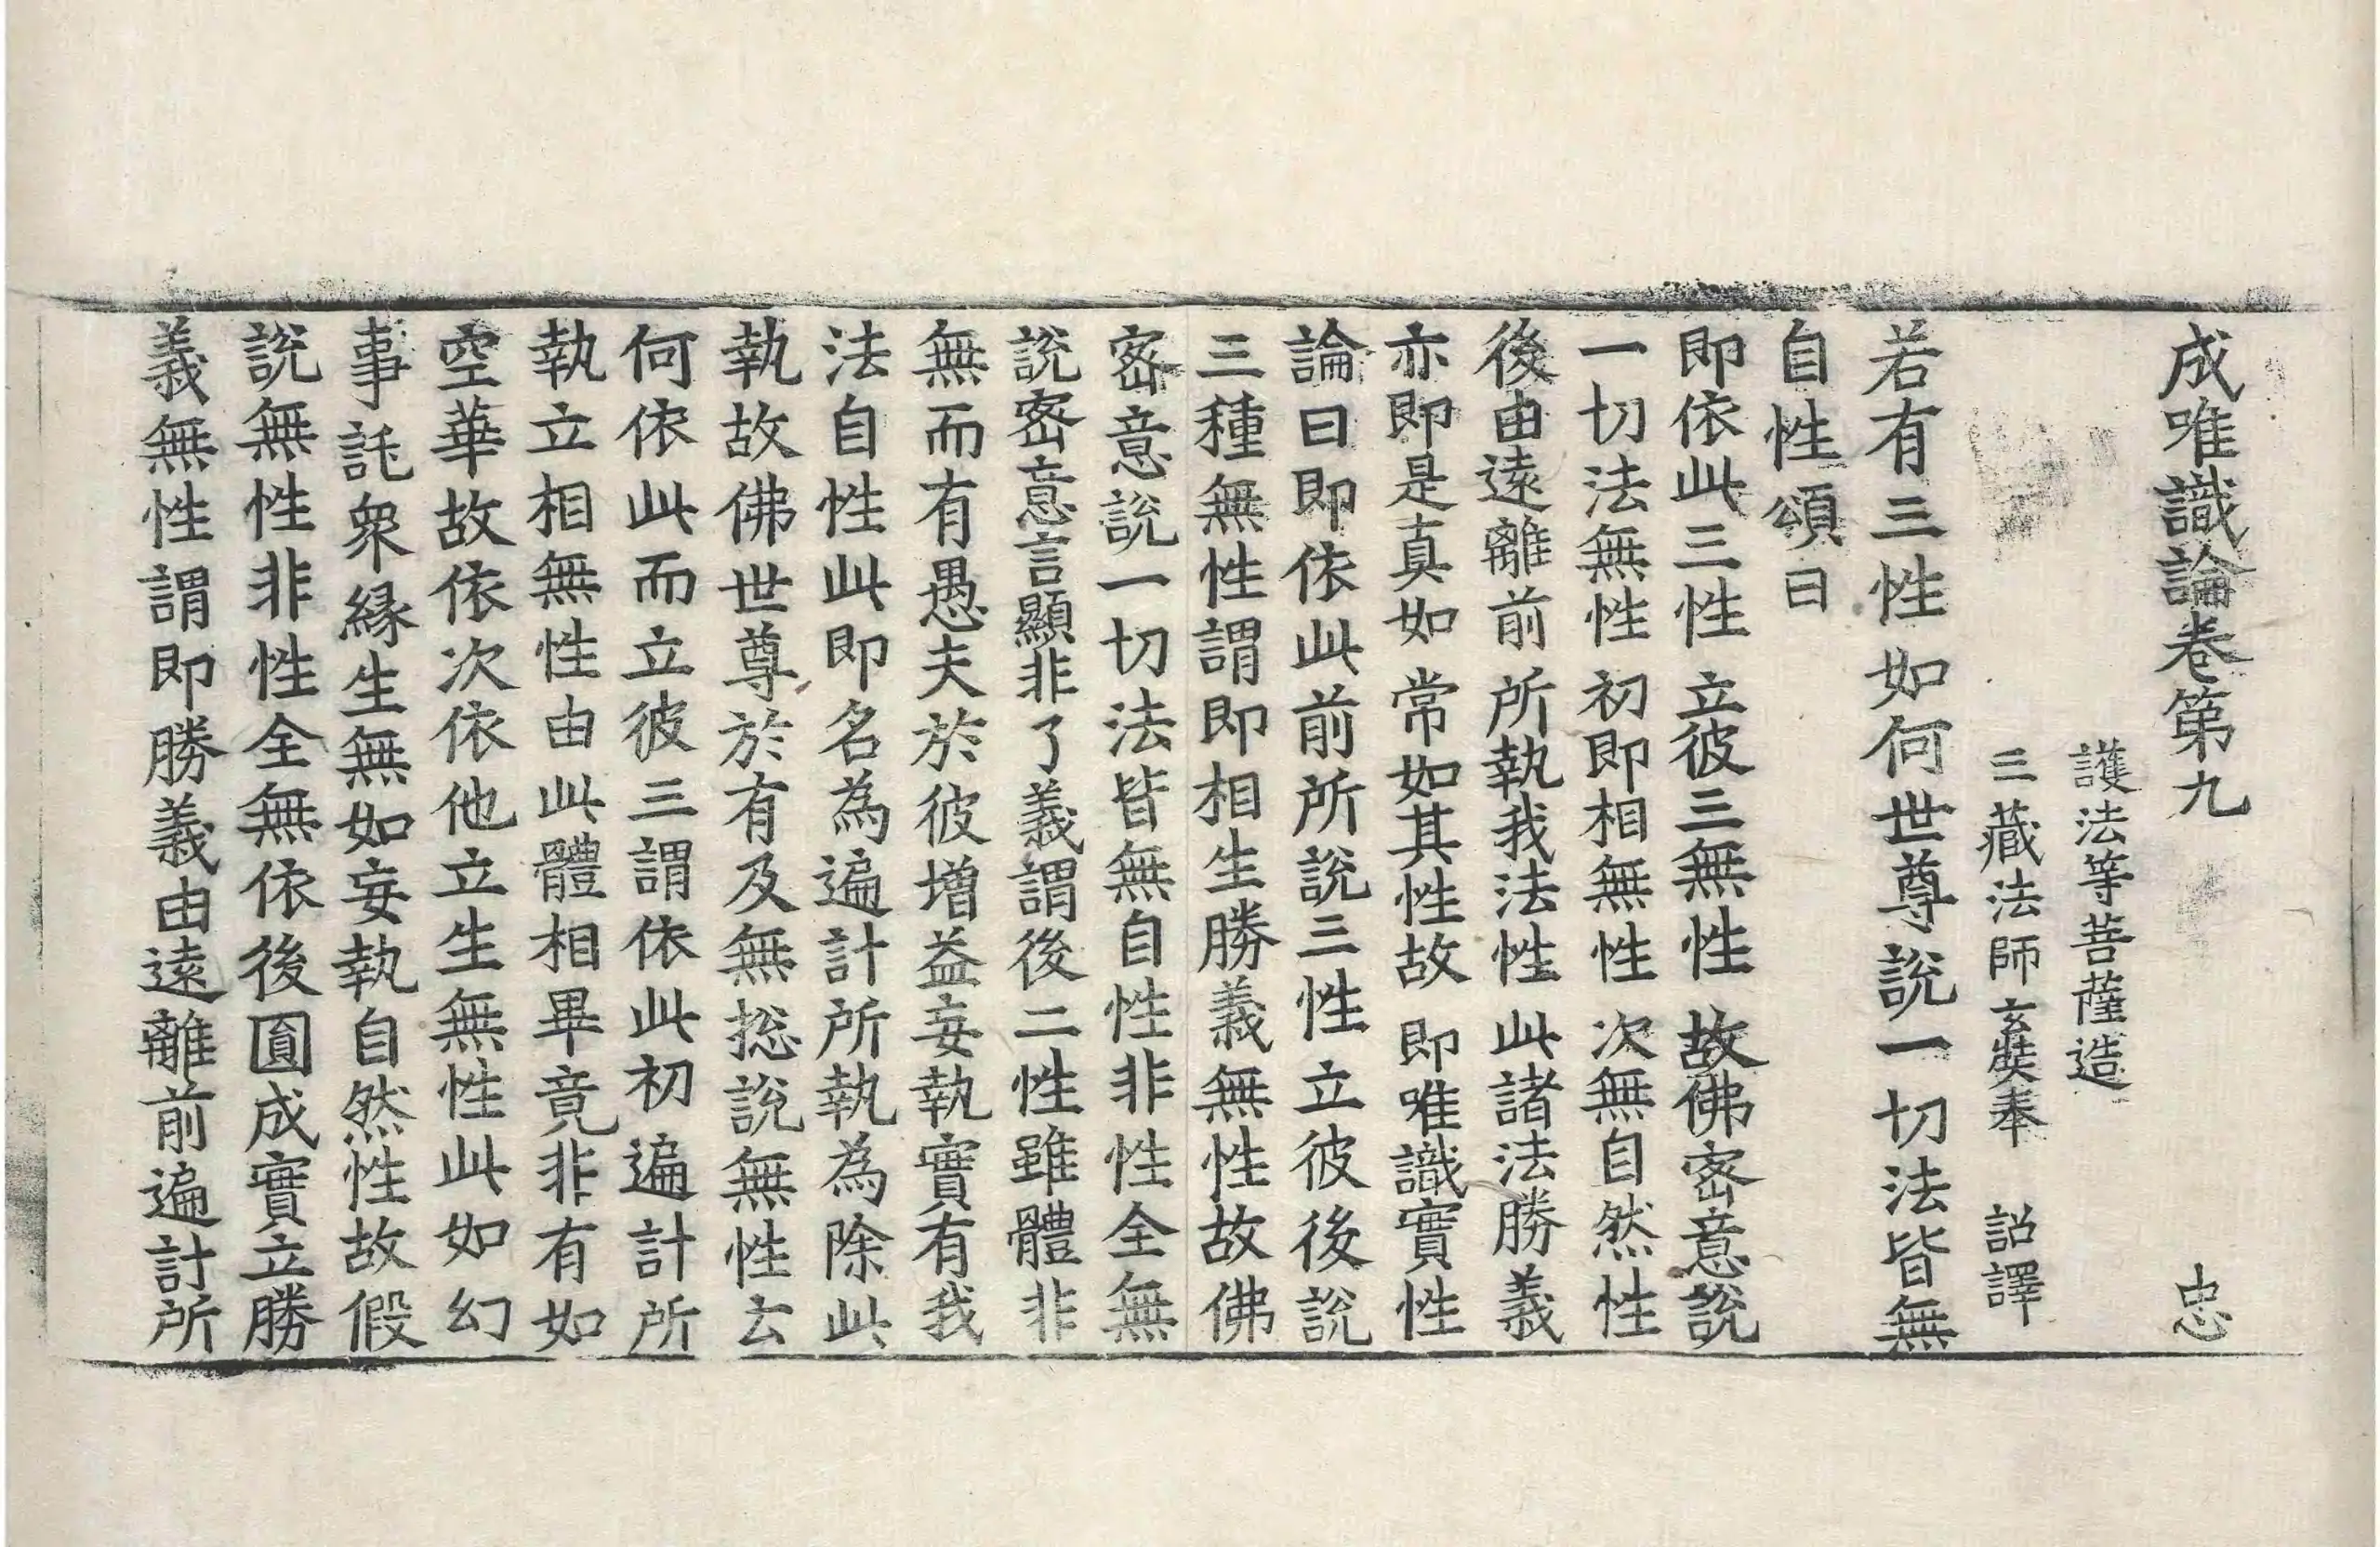 成唯識論卷第九 忠
護法等菩薩造
三藏法師玄奘奉 詔譯
若有三性如何世尊說一切法皆無
自性頌曰
即依此三性 立彼三無性 故佛密意說
一切法無性 初即相無性 次無自然性
後由遠離前 所執我法性 此諸法勝義
亦即是真如 常如其性故 即唯識實性
論曰即依此前所說三性立彼後說
三種無性謂即相生勝義無性故佛
密意說一切法皆無自性非性全無
說密意言顯非了義謂後二性雖體非
無而有愚夫於彼增益妄執實有我
法自性此即名為遍計所執為除此
執故佛世尊於有及無捴說無性云
何依此而立彼三謂依此初遍計所
執立相無性由此體相畢竟非有如
空華故依次依他立生無性此如幻
事託衆緣生無如妄執自然性故假
說無性非性全無依後圓成實立勝
義無性謂即勝義由遠離前遍計所